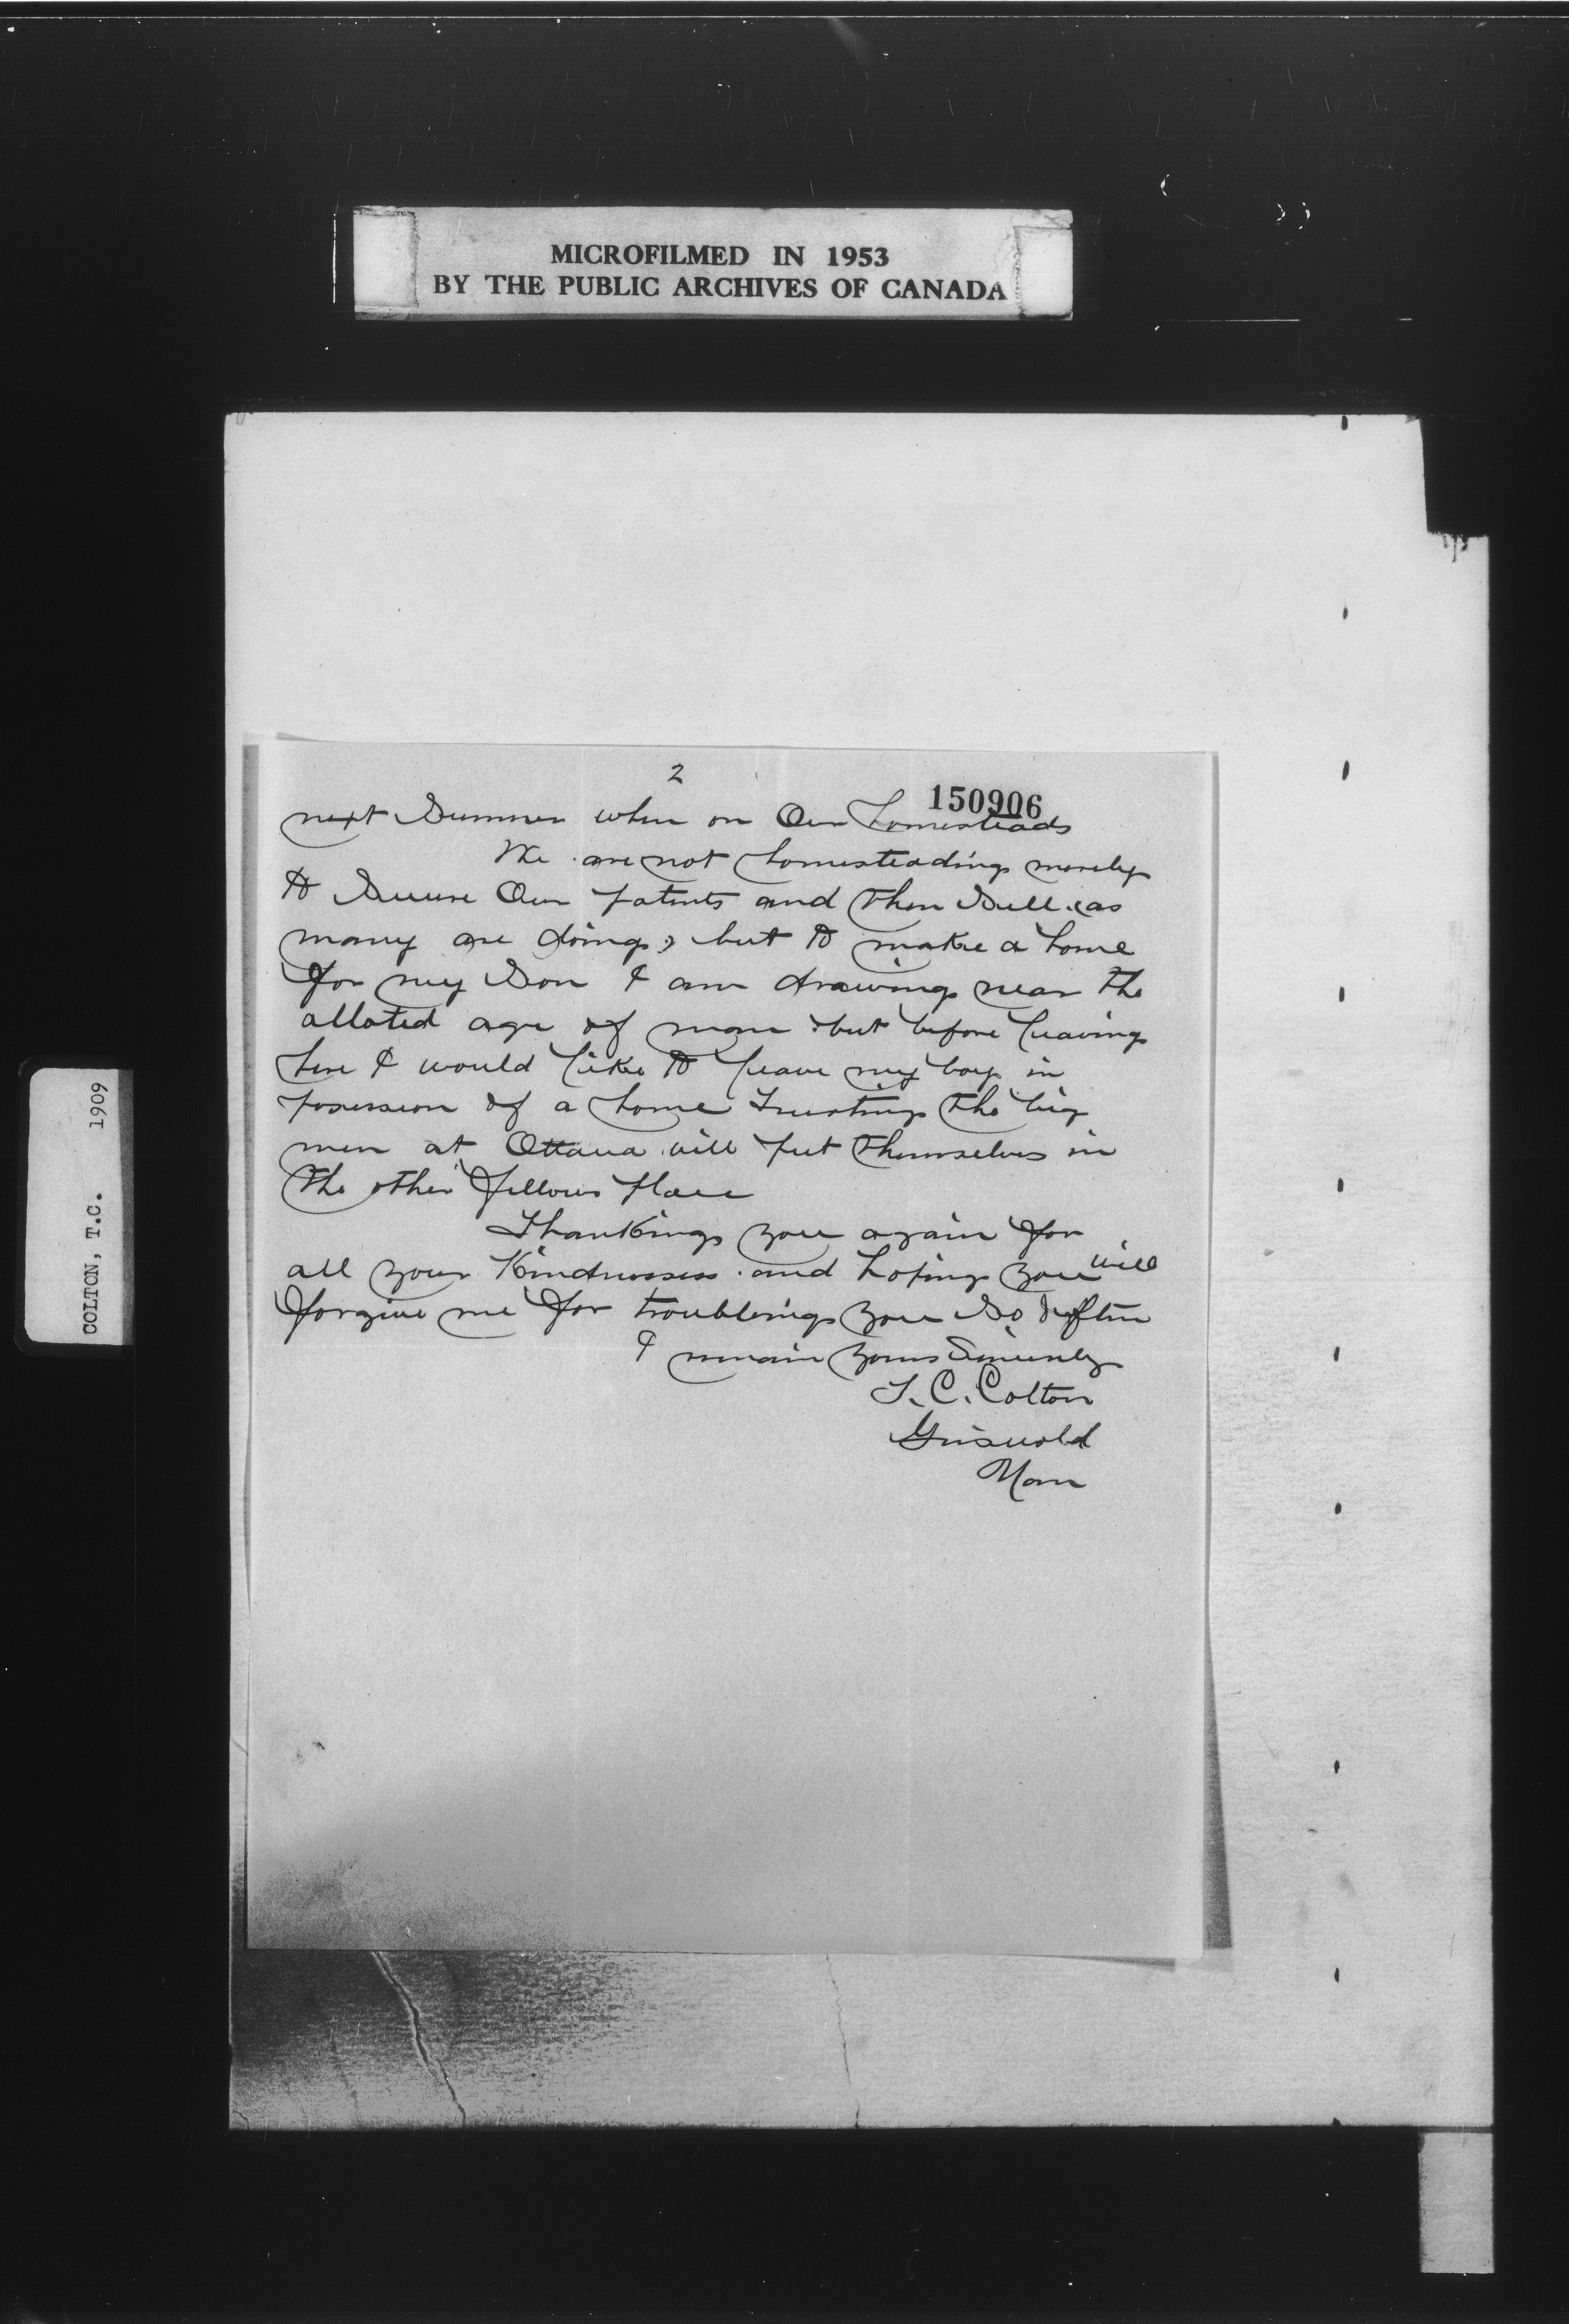 MICROFILMED IN 1953
BY THE PUBLIC ARCHIVES OF CANADA
COLTON, T.C. 1909
2
150906
next Summer when on Our homesteads
We are not homesteading merely
to Secure Our patents and then Sell (as
many are doing) but to make a home
for my Son I am drawing near the
alloted age of man but before leaving
here I would like to leave my boy in
possession of a home Trusting the big
men at Ottawa will put themselves in
the other fellows place
Thanking you again for
all your Kindnesses and hoping you will
forgive me for troubling you So often
I remain yours Sincerely
T. C. Colton
Griswold
Man